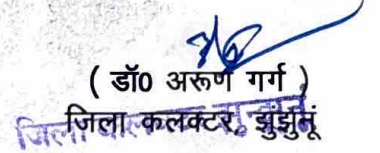 ( डॉ0 अरूण गर्ग )
जिला कलक्टर, झुंझुनूं